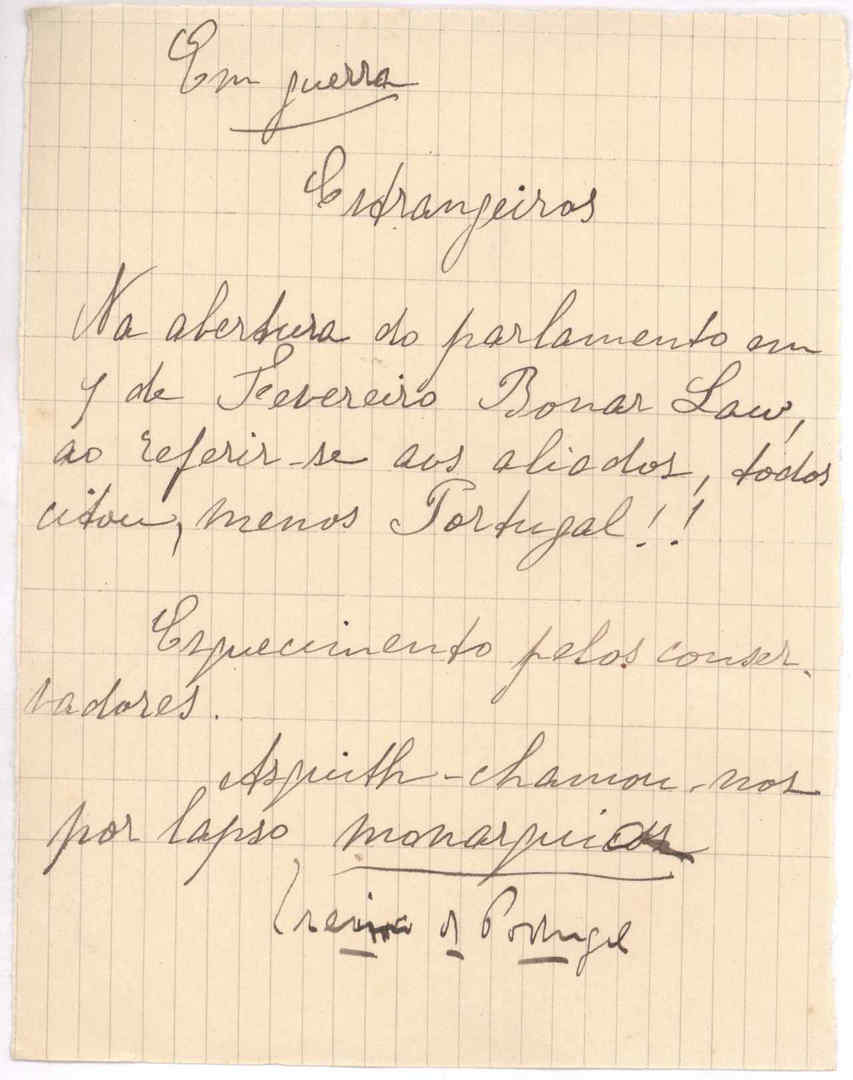 Em guerra
Estrangeiros
Na abertura do parlamento em
7 de Fevereiro Bonar Law,
ao referir-se aos aliados, todos
citou, menos Portugal!!
Esquecimento pelos conser-
vadores.
Asquith - chamou-nos
por lapso monarquia
de Portugal